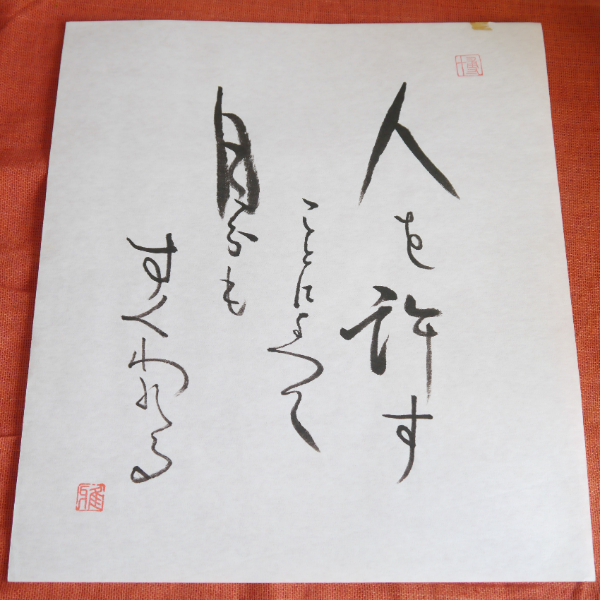 人を許す
ことによって
自分も
すくわれる